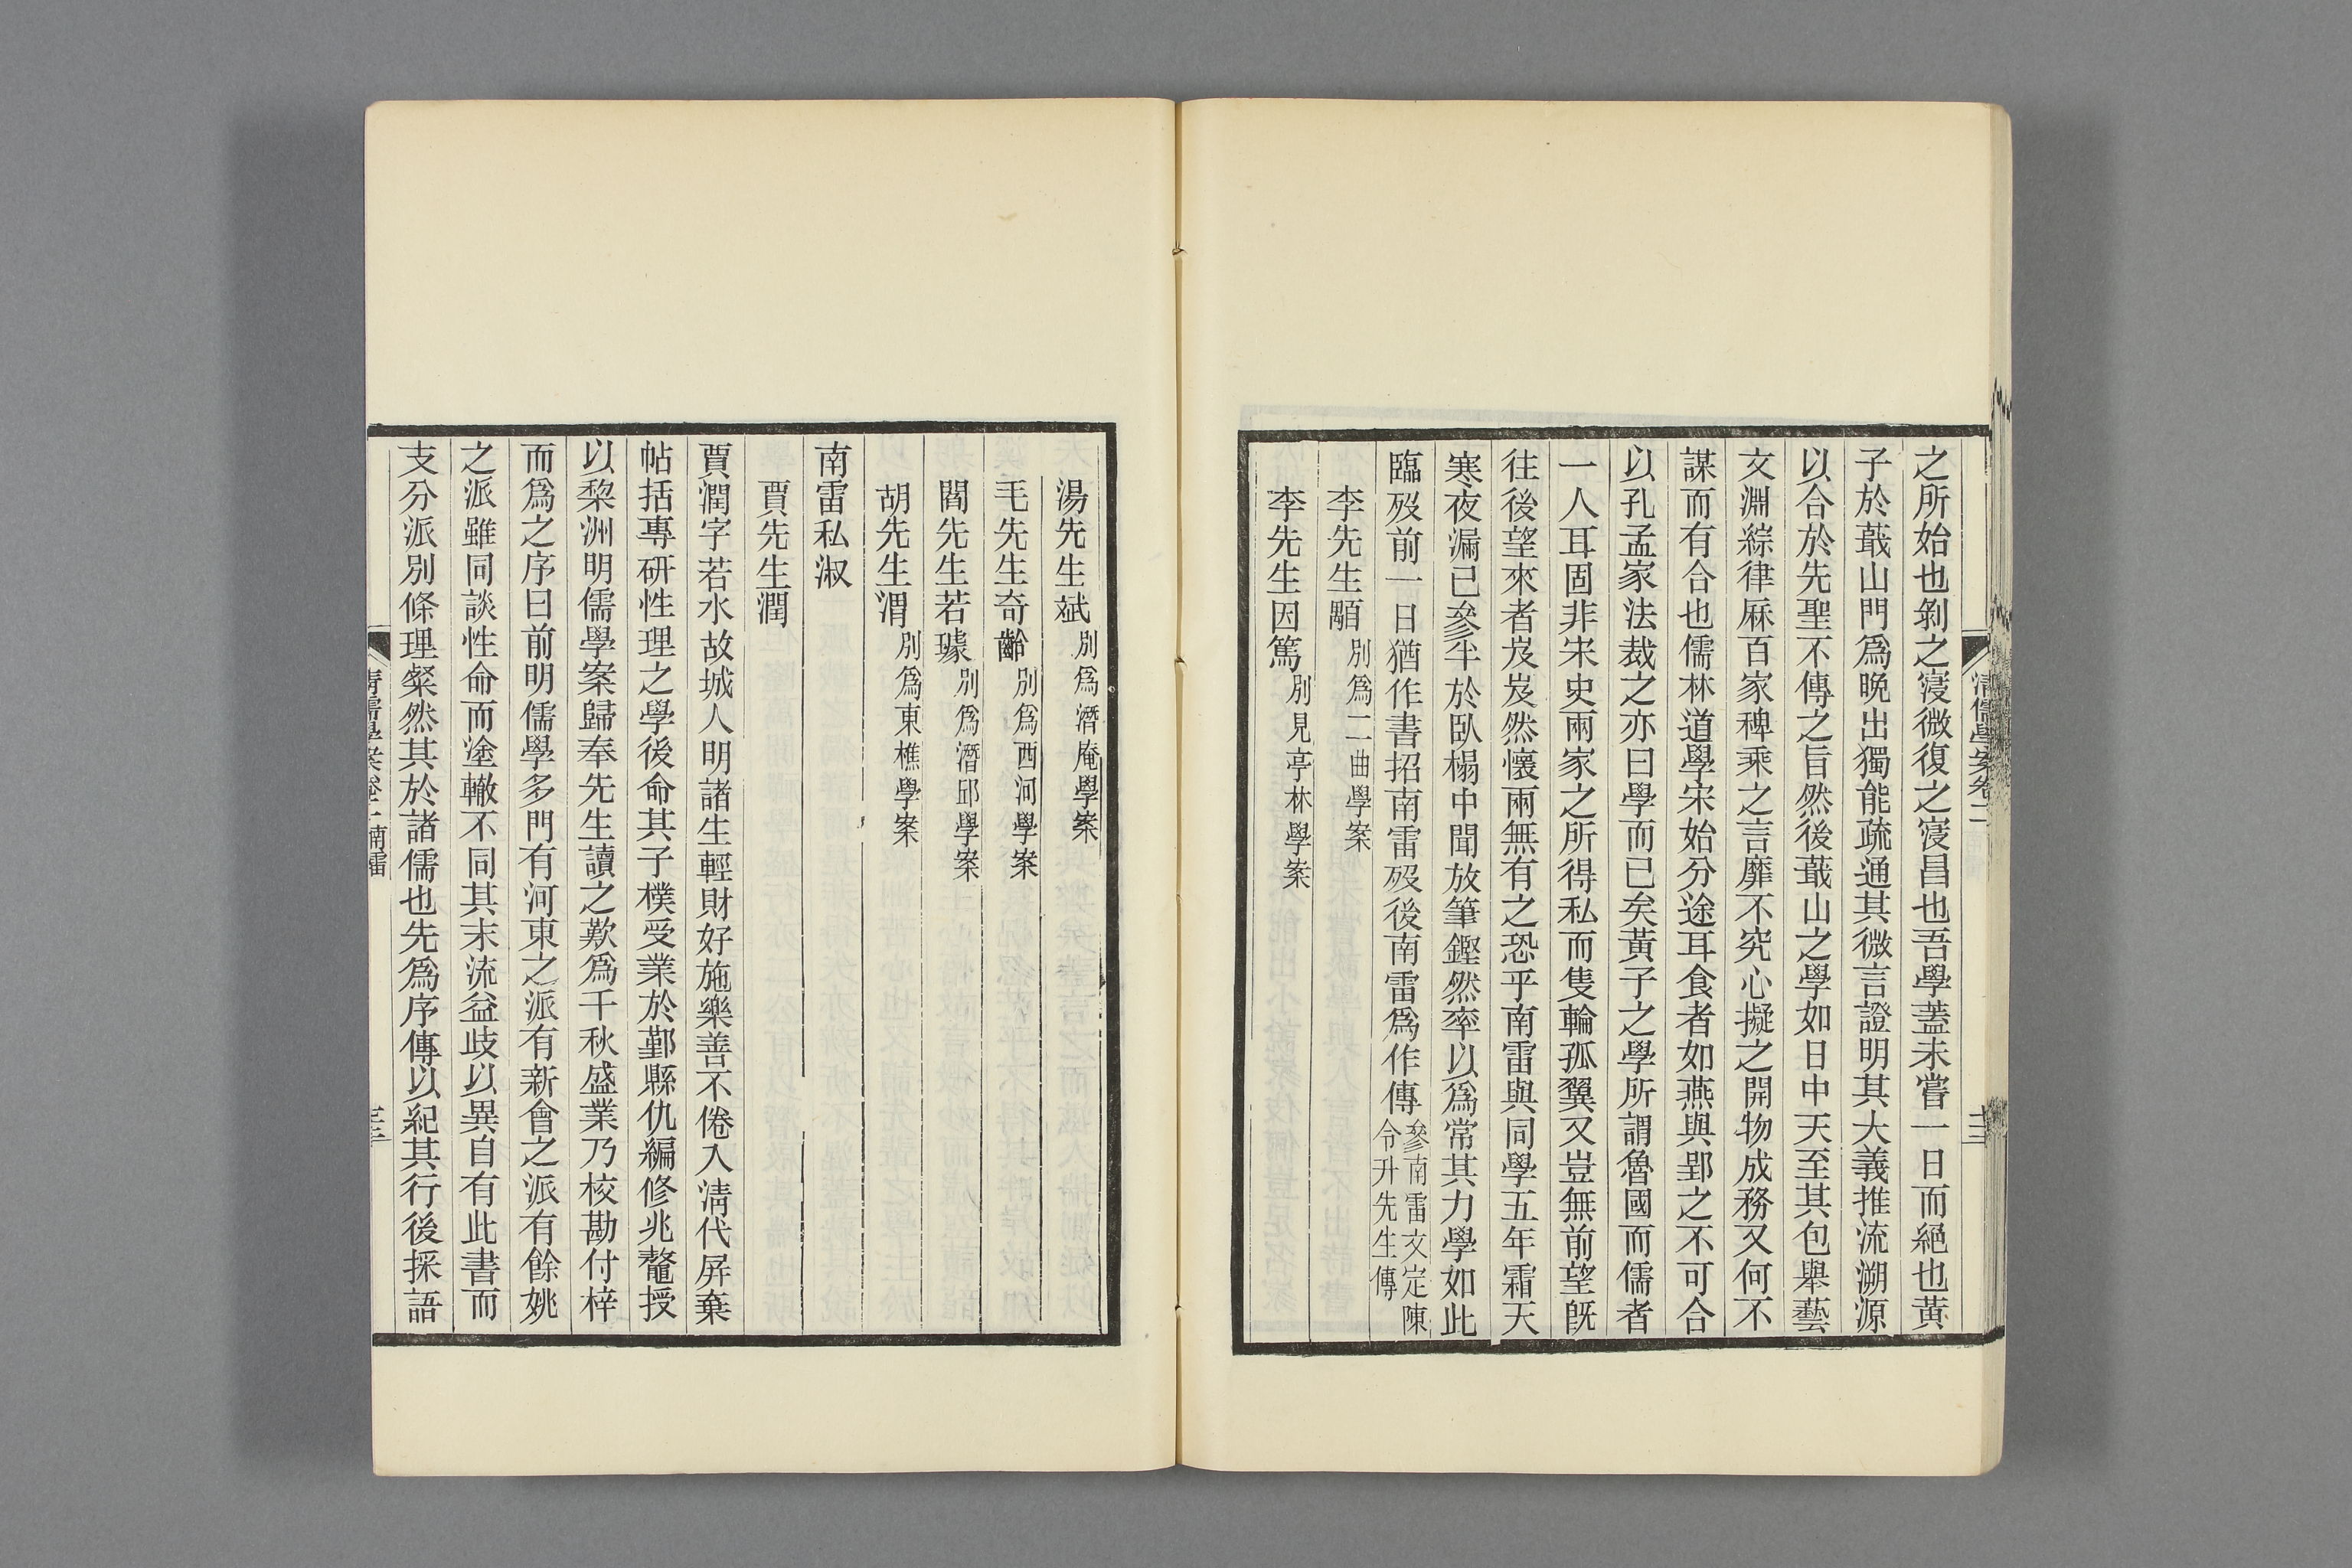 之所始也剝之寖微復之寖昌也吾學蓋未嘗一日而絕也黃
子於蕺山門爲晩出獨能疏通其微言證明其大義推流溯源
以合於先聖不傳之旨然後蕺山之學如日中天至其包舉藝
文淵綜律厤百家稗乘之言靡不究心擬之開物成務又何不
謀而有合也儒林道學宋始分途耳食者如燕與郢之不可合
以孔孟家法裁之亦曰學而已矣黃子之學所謂魯國而儒者
一人耳固非宋史兩家之所得私而隻輪孤翼又豈無前望旣
往後望來者岌岌然懷兩無有之恐乎南雷與同學五年霜天
寒夜漏已參半於臥榻中聞放筆鏗然率以爲常其力學如此
臨歿前一日猶作書招南雷歿後南雷爲作傳參南雷文定陳令升先生傳
李先生顒別爲二曲學案
李先生因篤別見亭林學案
清儒學案卷二
湯先生斌別爲潛庵學案
毛先生奇齡別爲西河學案
閻先生若璩別爲潛邱學案
胡先生渭別爲東樵學案
南雷私淑
賈先生潤
賈潤字若水故城人明諸生輕財好施樂善不倦入淸代屏棄
帖括專研性理之學後命其子樸受業於鄞縣仇編修兆鼇授
以棃洲明儒學案歸奉先生讀之歎爲千秋盛業乃校勘付梓
而爲之序曰前明儒學多門有河東之派有新會之派有餘姚
之派雖同談性命而塗轍不同其末流益歧以異自有此書而
支分派別條理粲然其於諸儒也先爲序傳以紀其行後採語